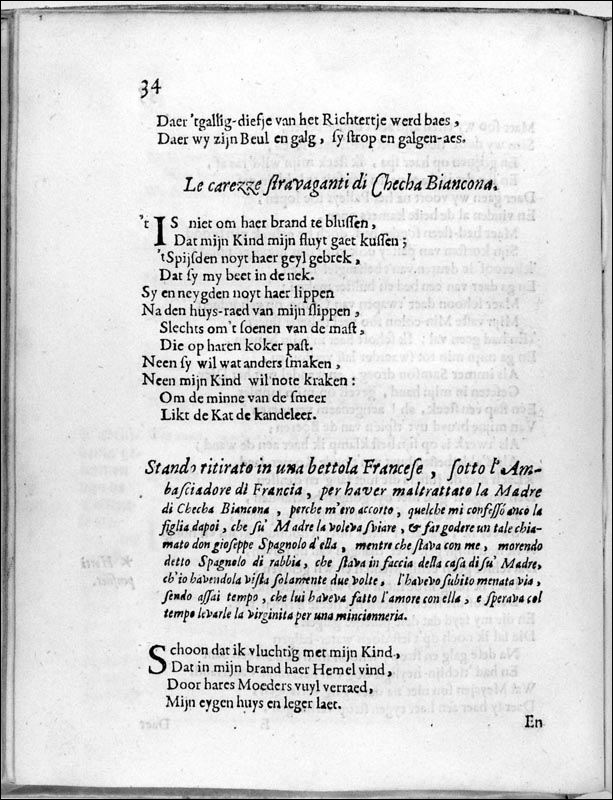 34
Daer 'tgallig-diefje van het Richtertje werd baes,
Daer wy zijn Beul en galg, ſy ſtrop en galgen-aes.
Le carezze ſtravaganti di Checha Biancona.
't IS niet om haer brand te bluſſen,
Dat mijn Kind mijn fluyt gaet kuſſen;
'tSpijſden noyt haer geyl gebrek,
Dat ſy my beet in de nek.
Sy en neygden noyt haer lippen
Na den huys-raed van mijn ſlippen,
Slechts om't ſoenen van de maſt,
Die op haren koker paſt.
Neen ſy wil wat anders ſmaken,
Neen mijn Kind wil note kraken:
Om de minne van de ſmeer
Likt de Kat de kandeleer.
Stando ritirato in una bettola Franceſe, ſotto l'Am-
baſciadore di Francia, per haver maltrattato la Madre
di Checha Biancona, perche m'ero accorto, quelche mi confeſſò anco la
figlia dapoi, che ſu' Madre la voleva ſviare, & far godere un tale chia-
mato don gioſeppe Spagnolo d'ella, mentre che ſtava con me, morendo
detto Spagnolo di rabbia, che ſtava in faccia della caſa di ſu' Madre,
ch'io havendola viſta ſolamente due volte, l'havevo ſubito menata via,
ſendo aſſai tempo, che lui haveva fatto l'amore con ella, e ſperava col
tempo levarle la virginita per una mincionneria.
Schoon dat ik vluchtig met mijn Kind,
Dat in mijn brand haer Hemel vind,
Door hares Moeders vuyl verraed,
Mijn eygen huys en leger laet.
En